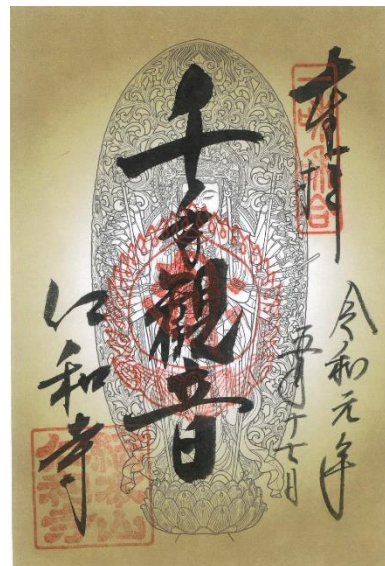 奉拝
令和元年
五月十七日
千手觀音
仁和寺